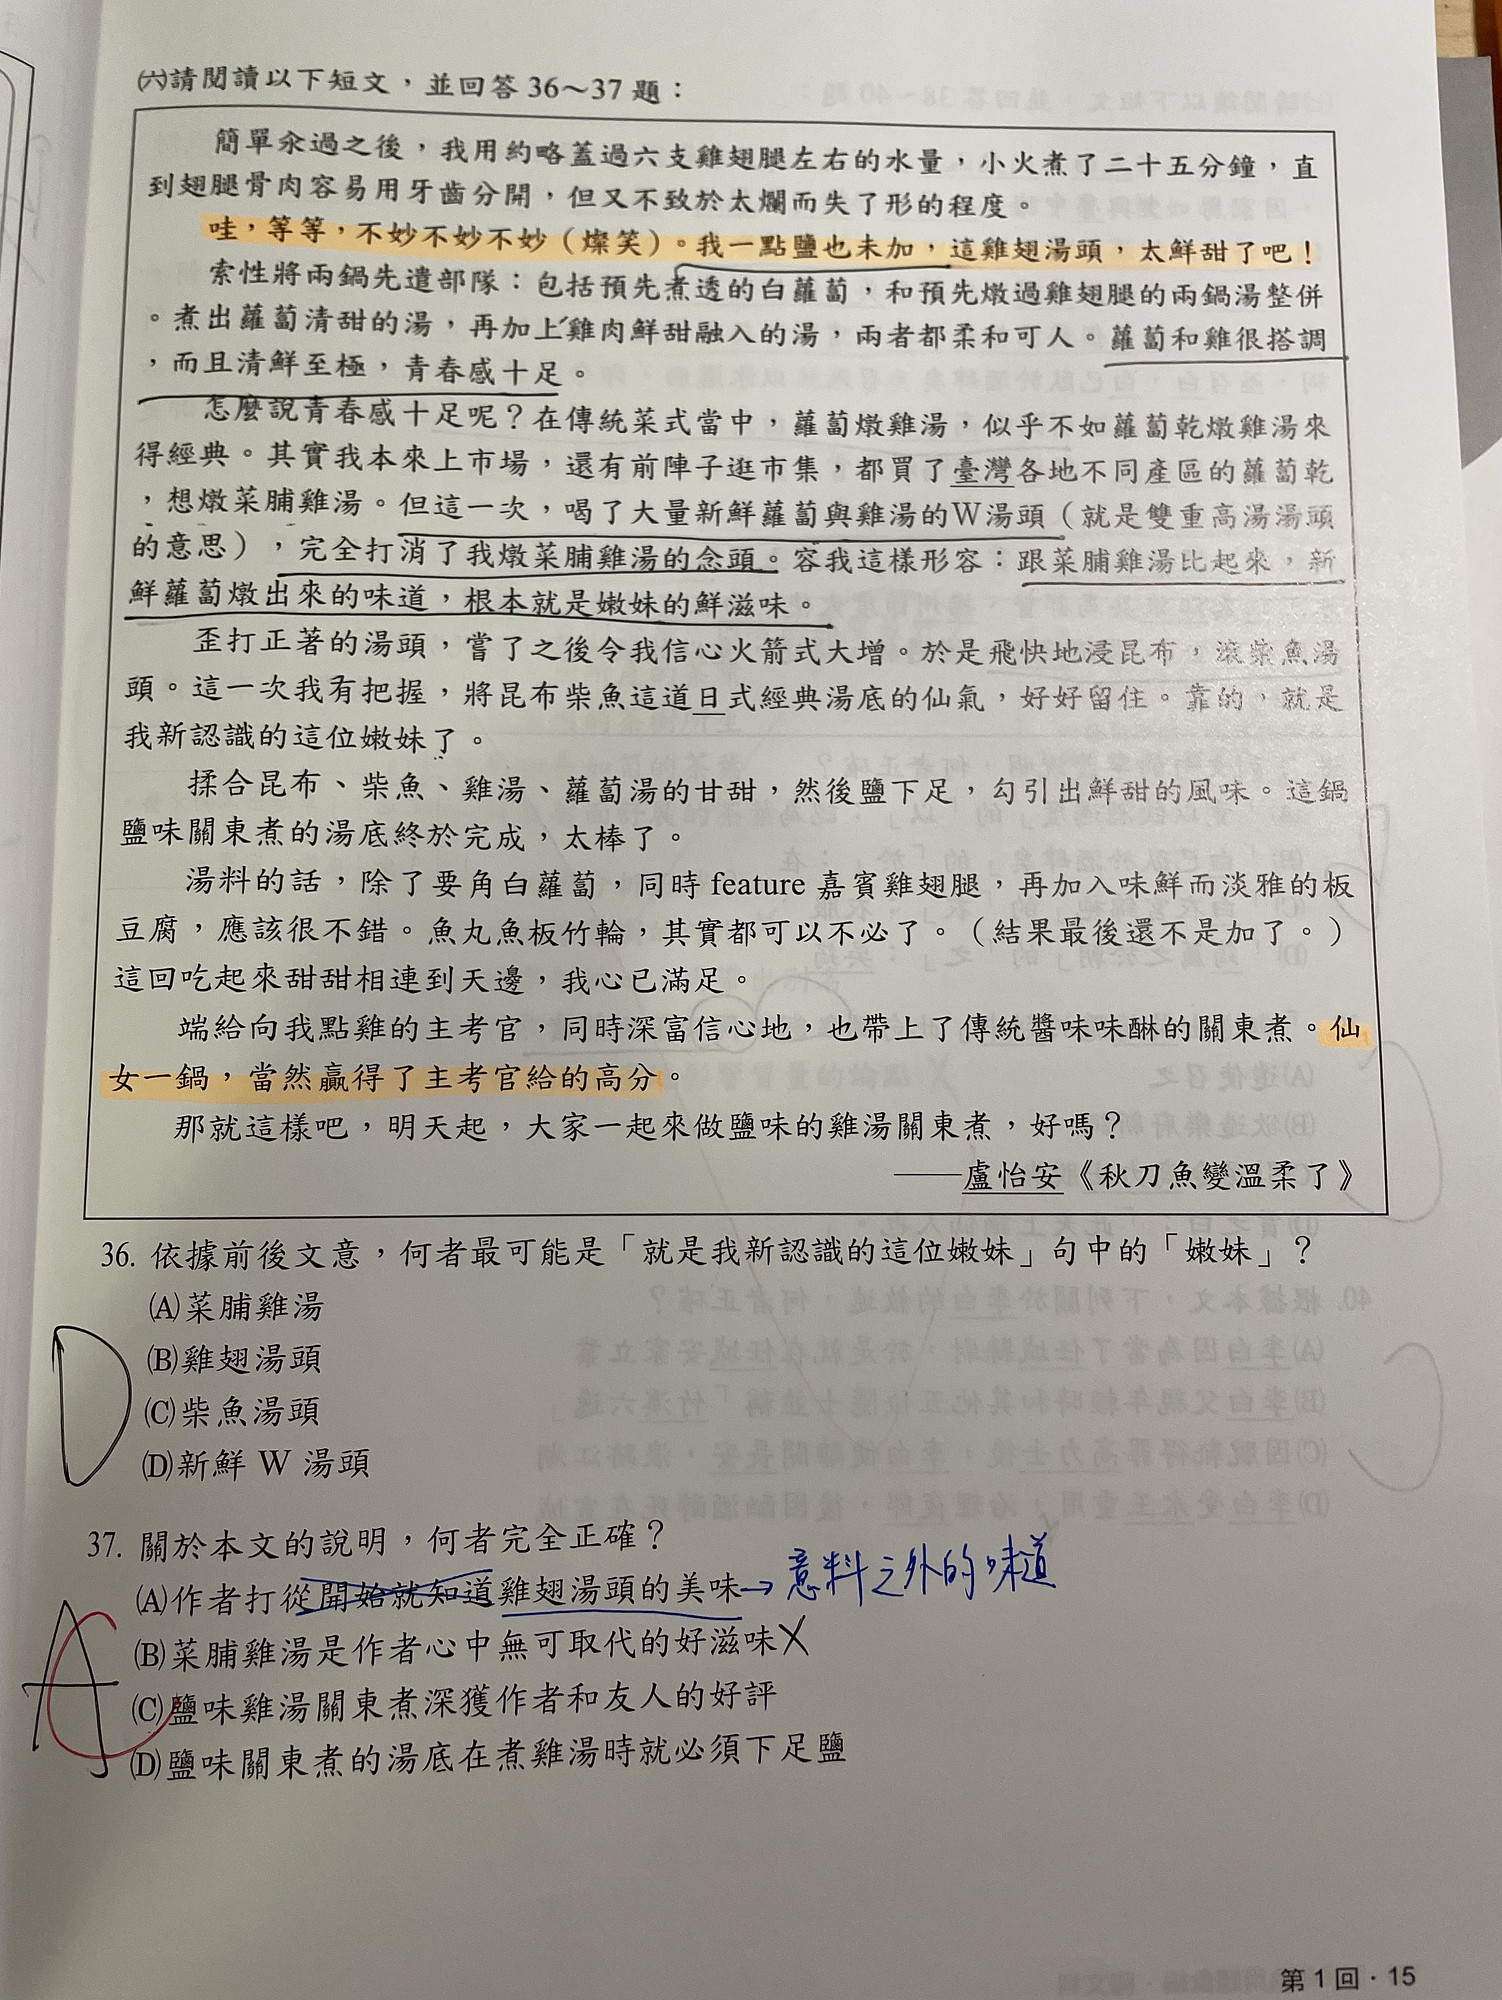 ㈥請閱讀以下短文，並回答 36～37 題：
簡單汆過之後，我用約略蓋過六支雞翅腿左右的水量，小火煮了二十五分鐘，直
到翅腿骨肉容易用牙齒分開，但又不致於太爛而失了形的程度。
哇，等等，不妙不妙不妙（燦笑）。我一點鹽也未加，這雞翅湯頭，太鮮甜了吧！
索性將兩鍋先遣部隊：包括預先煮透的白蘿蔔，和預先燉過雞翅腿的兩鍋湯整併
。煮出蘿蔔清甜的湯，再加上雞肉鮮甜融入的湯，兩者都柔和可人。蘿蔔和雞很搭調
，而且清鮮至極，青春感十足。
怎麼說青春感十足呢？在傳統菜式當中，蘿蔔燉雞湯，似乎不如蘿蔔乾燉雞湯來
得經典。其實我本來上市場，還有前陣子逛市集，都買了臺灣各地不同產區的蘿蔔乾
，想燉菜脯雞湯。但這一次，喝了大量新鮮蘿蔔與雞湯的W湯頭（就是雙重高湯湯頭
的意思），完全打消了我燉菜脯雞湯的念頭。容我這樣形容：跟菜脯雞湯比起來，新
鮮蘿蔔燉出來的味道，根本就是嫩妹的鮮滋味。
歪打正著的湯頭，嘗了之後令我信心火箭式大增。於是飛快地浸昆布，滾柴魚湯
頭。這一次我有把握，將昆布柴魚這道日式經典湯底的仙氣，好好留住。靠的，就是
我新認識的這位嫩妹了。
揉合昆布、柴魚、雞湯、蘿蔔湯的甘甜，然後鹽下足，勾引出鮮甜的風味。這鍋
鹽味關東煮的湯底終於完成，太棒了。
湯料的話，除了要角白蘿蔔，同時 feature 嘉賓雞翅腿，再加入味鮮而淡雅的板
豆腐，應該很不錯。魚丸魚板竹輪，其實都可以不必了。（結果最後還不是加了。）
這回吃起來甜甜相連到天邊，我心已滿足。
端給向我點雞的主考官，同時深富信心地，也帶上了傳統醬味味醂的關東煮。仙
女一鍋，當然贏得了主考官給的高分。
那就這樣吧，明天起，大家一起來做鹽味的雞湯關東煮，好嗎？
——盧怡安《秋刀魚變溫柔了》
36. 依據前後文意，何者最可能是「就是我新認識的這位嫩妹」句中的「嫩妹」？
(A)菜脯雞湯
(B)雞翅湯頭
(C)柴魚湯頭
(D)新鮮 W 湯頭
D
37. 關於本文的說明，何者完全正確？
(A)作者打從開始就知道雞翅湯頭的美味→意料之外的味道
(B)菜脯雞湯是作者心中無可取代的好滋味X
(C)鹽味雞湯關東煮深獲作者和友人的好評
(D)鹽味關東煮的湯底在煮雞湯時就必須下足鹽
A
C
第 1 回・15